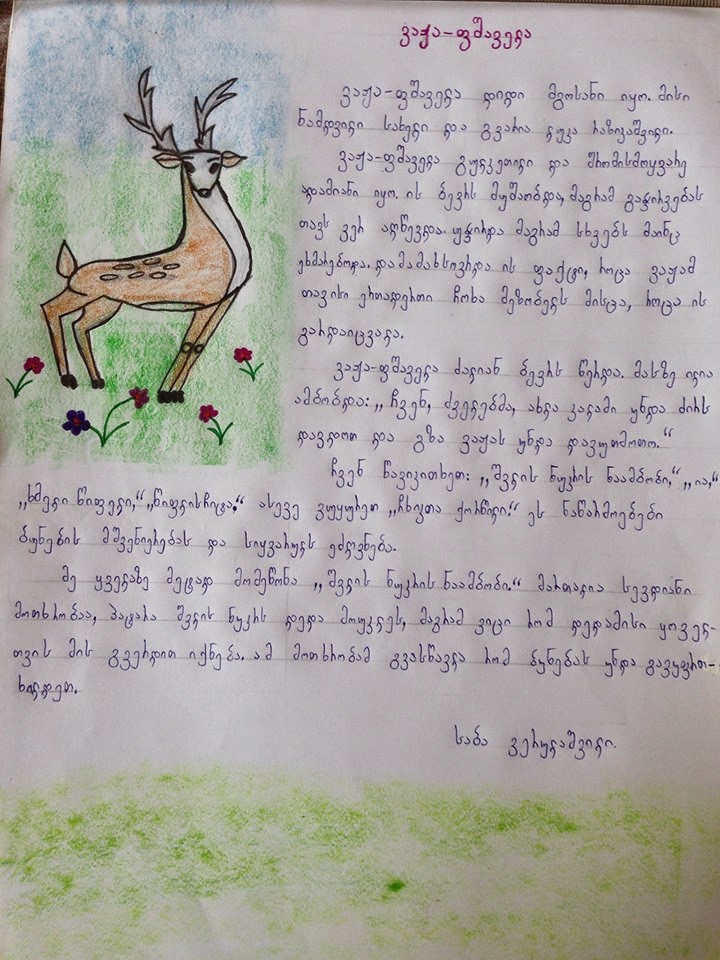 ვაჟა-ფშაველა
ვაჟა-ფშაველა დიდი მგოსანი იყო. მისი
ნამდვილი სახელი და გვარია ლუკა რაზიკაშვილი.
ვაჟა-ფშაველა გულკეთილი და შრომისმოყვარე
ადამიანი იყო. ის ბევრს მუშაობდა, მაგრამ გაჭირვებას
თავს ვერ აღწევდა. უჭირდა მაგრამ სხვებს მაინც
ეხმარებოდა. დამამახსოვრდა ის ფაქტი, როცა ვაჟამ
თავისი ერთადერთი ჩოხა მეზობელს მისცა, როცა ის
გარდაიცვალა.
ვაჟა-ფშაველა ძალიან ბევრს წერდა. მასზე ილია
ამბობდა: ,,ჩვენ, ძველებმა, ახლა კალამი უნდა ძირს
დავდოთ და გზა ვაჟას უნდა დავუთმოთო.“
ჩვენ წავიკითხეთ: ,,შვლის ნუკრის ნაამბობი,“ ,,ია,“
,,ხმელი წიფელი,“ ,,წიფლისჩიტა.“ ასევე ვუყურეთ ,,ჩხიკთა ქორწილი.“ ეს ნაწარმოებები
ბუნების მშვენიერებას და სიყვარულს ეძღვნება.
მე ყველაზე მეტად მომეწონა ,,შვლის ნუკრის ნაამბობი.“ მართალია სევდიანი
მოთხრობაა, პატარა შვლის ნუკრს დედა მოუკლეს, მაგრამ ვიცი რომ დედამისი ყოველ-
თვის მის გვერდით იქნება. ამ მოთხრობამ გვასწავლა რომ ბუნებას უნდა გავუფრთ-
ხილდეთ.
საბა ვერულაშვილი.